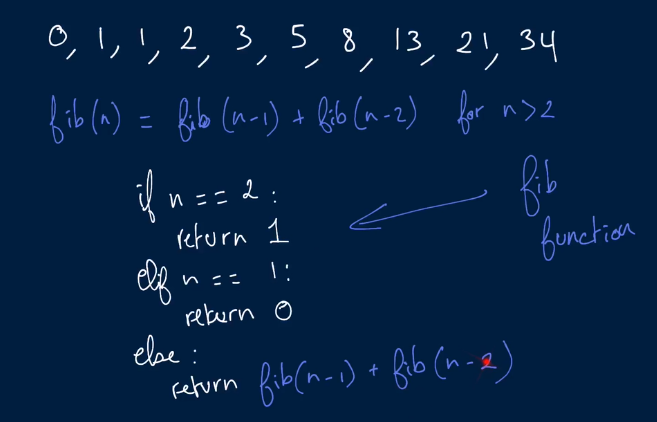 0, 1, 1, 2, 3, 5, 8, 13, 21, 34
fib(n) = fib(n-1) + fib(n-2) for n>2
if n == 2:
return 1
elif n == 1:
return 0
else:
return fib(n-1) + fib(n-2)
fib
function